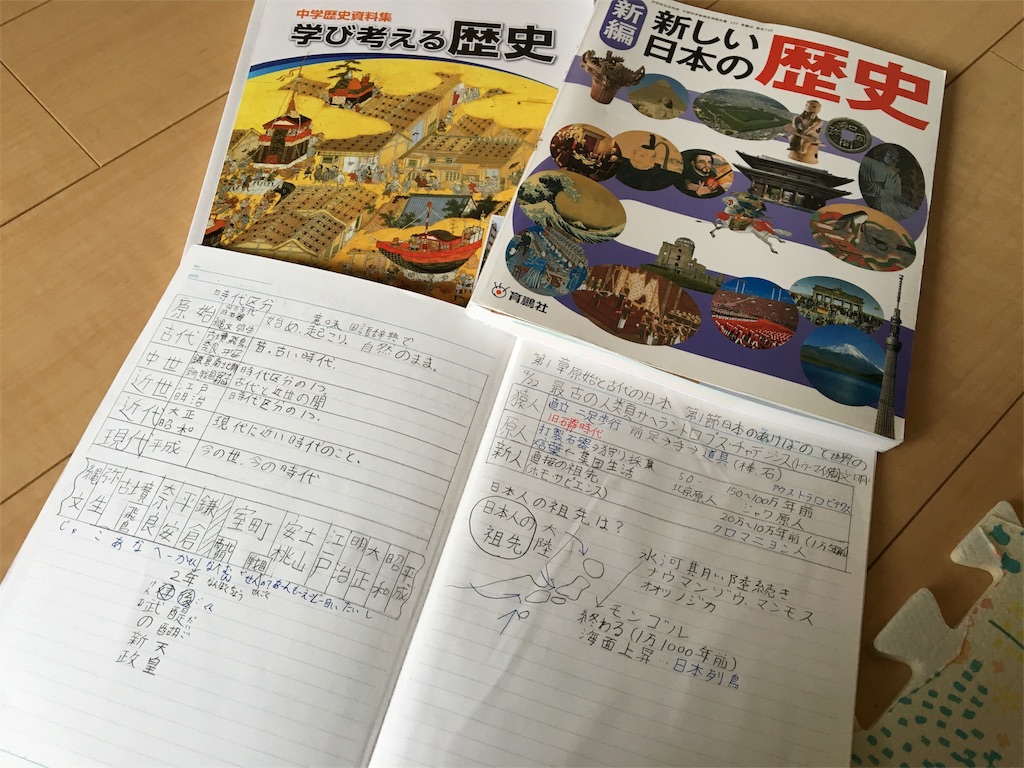 中学歴史資料集
学び考える歴史
新編
新しい
日本の
歴史
育鵬社
時代区分
意味 国語辞典で
原始
始め、起こり、自然のまま。
古代
昔。古い時代。
中世
時代区分の1つ
古代と近世の間
近世 江戸
時代区分の1つ。
近代 明治 大正 昭和
現代に近い時代のこと、
現代 平成
今の世、今の時代
縄文 弥生 古墳 飛鳥 奈良 平安 鎌倉 室町 安土桃山 江戸 明治 大正 昭和 平成
2年
建武の新政
後醍醐天皇
第1章原始と古代の日本 第1節日本のあけぼのと世界の文明
最古の人類
猿人 直立二足歩行
前足→手→道具(棒、石)
旧石器時代
原人 打製石器→狩り採集
言葉←集団生活
新人 直接の祖先
ホモサピエンス)
アウストラロピテクス
150〜100万年前
50
北京原人
ジャワ原人
20万〜10万年前(1万年前)
クロマニョン人
日本人の祖先は?
日本人の祖先
大陸
氷河期 陸続き
ナウマンゾウ、マンモス
オオツノジカ
モンゴル
終わる(1万1000年前)
海面上昇…日本列島